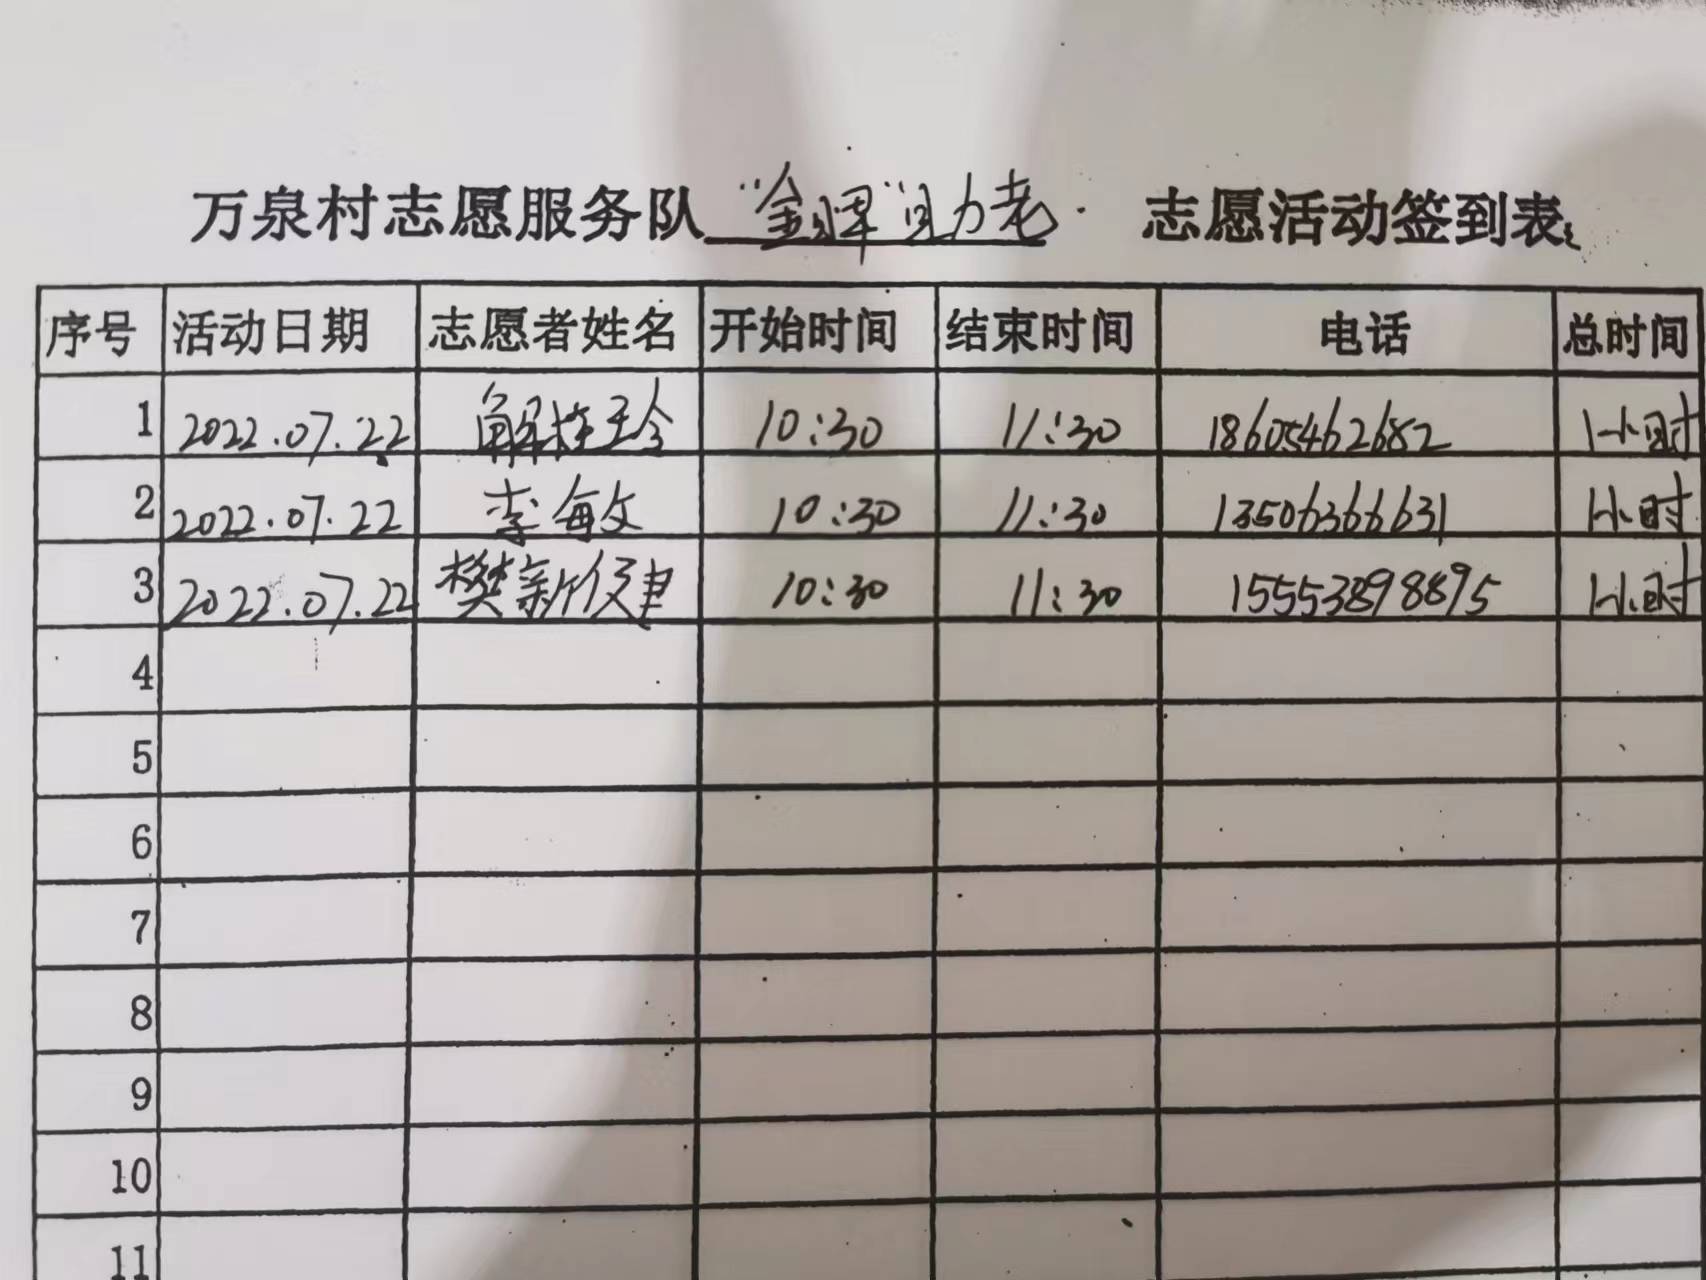 万泉村志愿服务队 "金晖"助老 志愿活动签到表
序号 活动日期 志愿者姓名 开始时间 结束时间 电话 总时间
1 2022.07.22 解 10:30 11:30 18605462682 1小时
2 2022.07.22 李敏 10:30 11:30 13506366631 1小时
3 2022.07.22 樊新 10:30 11:30 15553898895 1小时
4
5
6
7
8
9
10
11